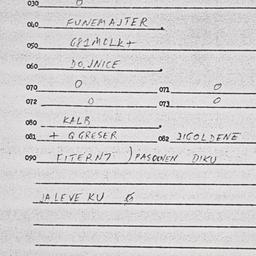 030 0
040 FUNEMAJTER.
050 G81MCLK+
060 DOJNICE.
070 0 071 0
072 0 073 0
080 KALB.
081 + GGRESER 082 DIGOLDENE
090 FITERNT ) PASOWEN DIKU
JALEVE KU